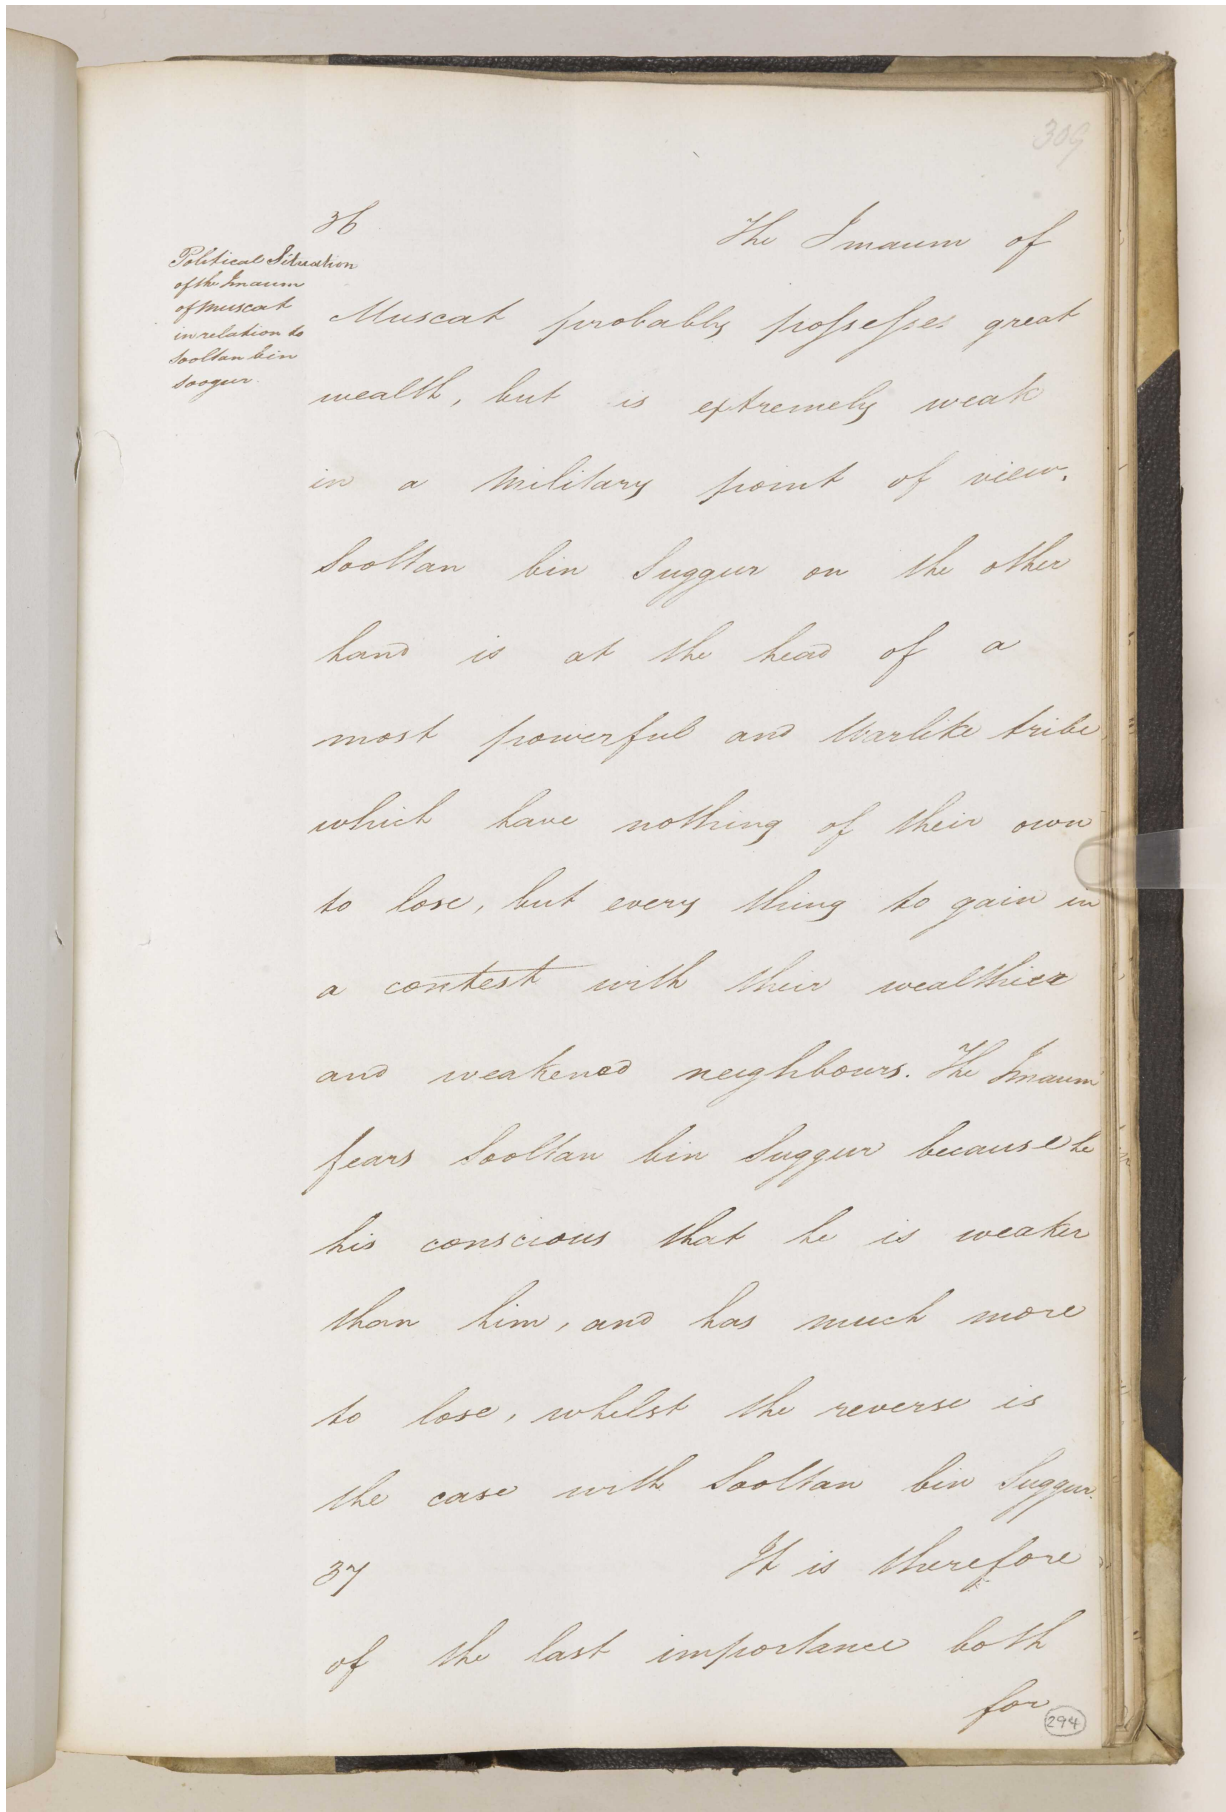 309
36
Political Situation
of the Imaum
of Muscat
in relation to
Sooltan bin
Soogur.
The Imaum of
Muscat probably possesses great
wealth, but is extremely weak
in a Military point of view.
Sooltan bin Suggur on the other
hand is at the head of a
most powerful and Warlike tribe
which have nothing of their own
to lose, but every thing to gain in
a contest with their wealthier
and weakened neighbours. The Imaum
fears Sooltan bin Suggur because he
his conscious that he is weaker
than him, and has much more
to lose, whilst the reverse is
the case with Sooltan bin Suggur.
37 It is therefore
of the last importance both
for
294